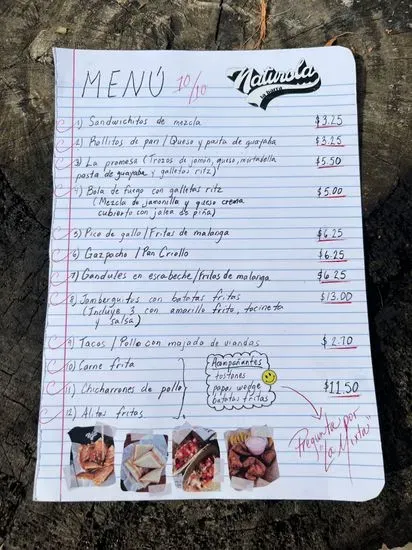 MENÚ 10/10
Naturola
1) Sandwichitos de mezcla $3.25
2) Rollitos de pan / Queso y pasta de guayaba $3.25
3) La promesa (Trozos de jamón, queso, mortadella $5.50
pasta de guayaba y galletas ritz)
4) Bola de fuego con galletas ritz $5.00
(Mezcla de jamonilla y queso crema
cubierto con jalea de piña)
5) Pico de gallo / Fritas de malanga $6.25
6) Gazpacho / Pan Criollo $6.25
7) Gandules en escabeche / fritas de malanga $6.25
8) Jamberguitos con batatas fritas $13.00
(Incluye 3 con amarillo frito, tocineta
y salsa)
9) Tacos / Pollo con majado de viandas $2.70
10) Carne frita
11) Chicharrones de pollo
12) Alitas fritas
Acompañantes
tostones
papa wedge
batatas fritas
$11.50
Pregunta por
"La Mixta"